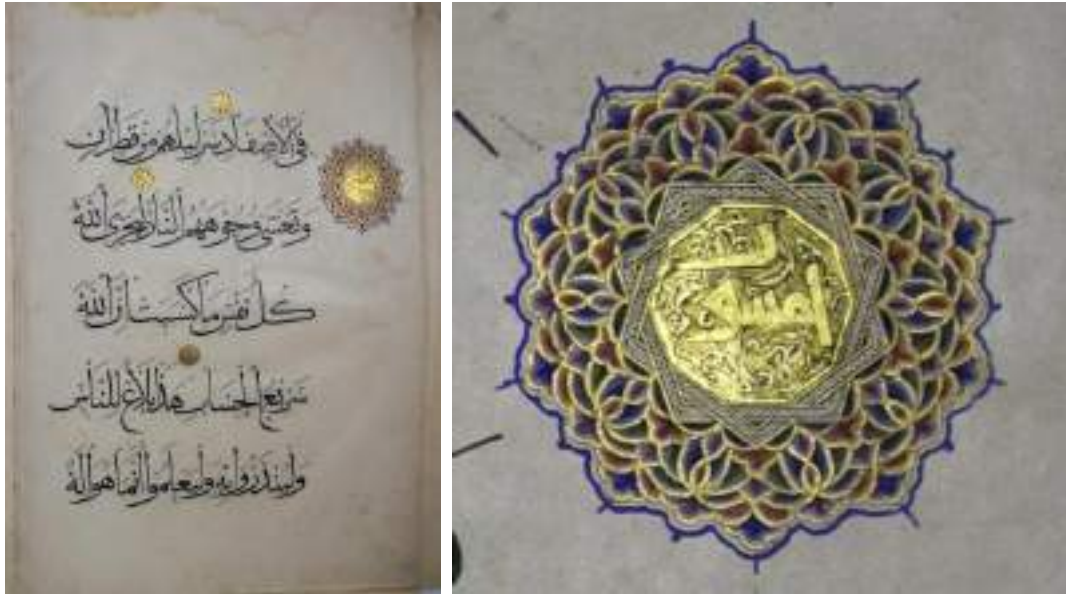 في الأصفاد سرابيلهم من قطران
وتغشى وجوههم النار ليجزي الله
كل نفس ما كسبت إن الله
سريع الحساب هذا بلاغ للناس
ولينذروا به وليعلموا أنما هو إله